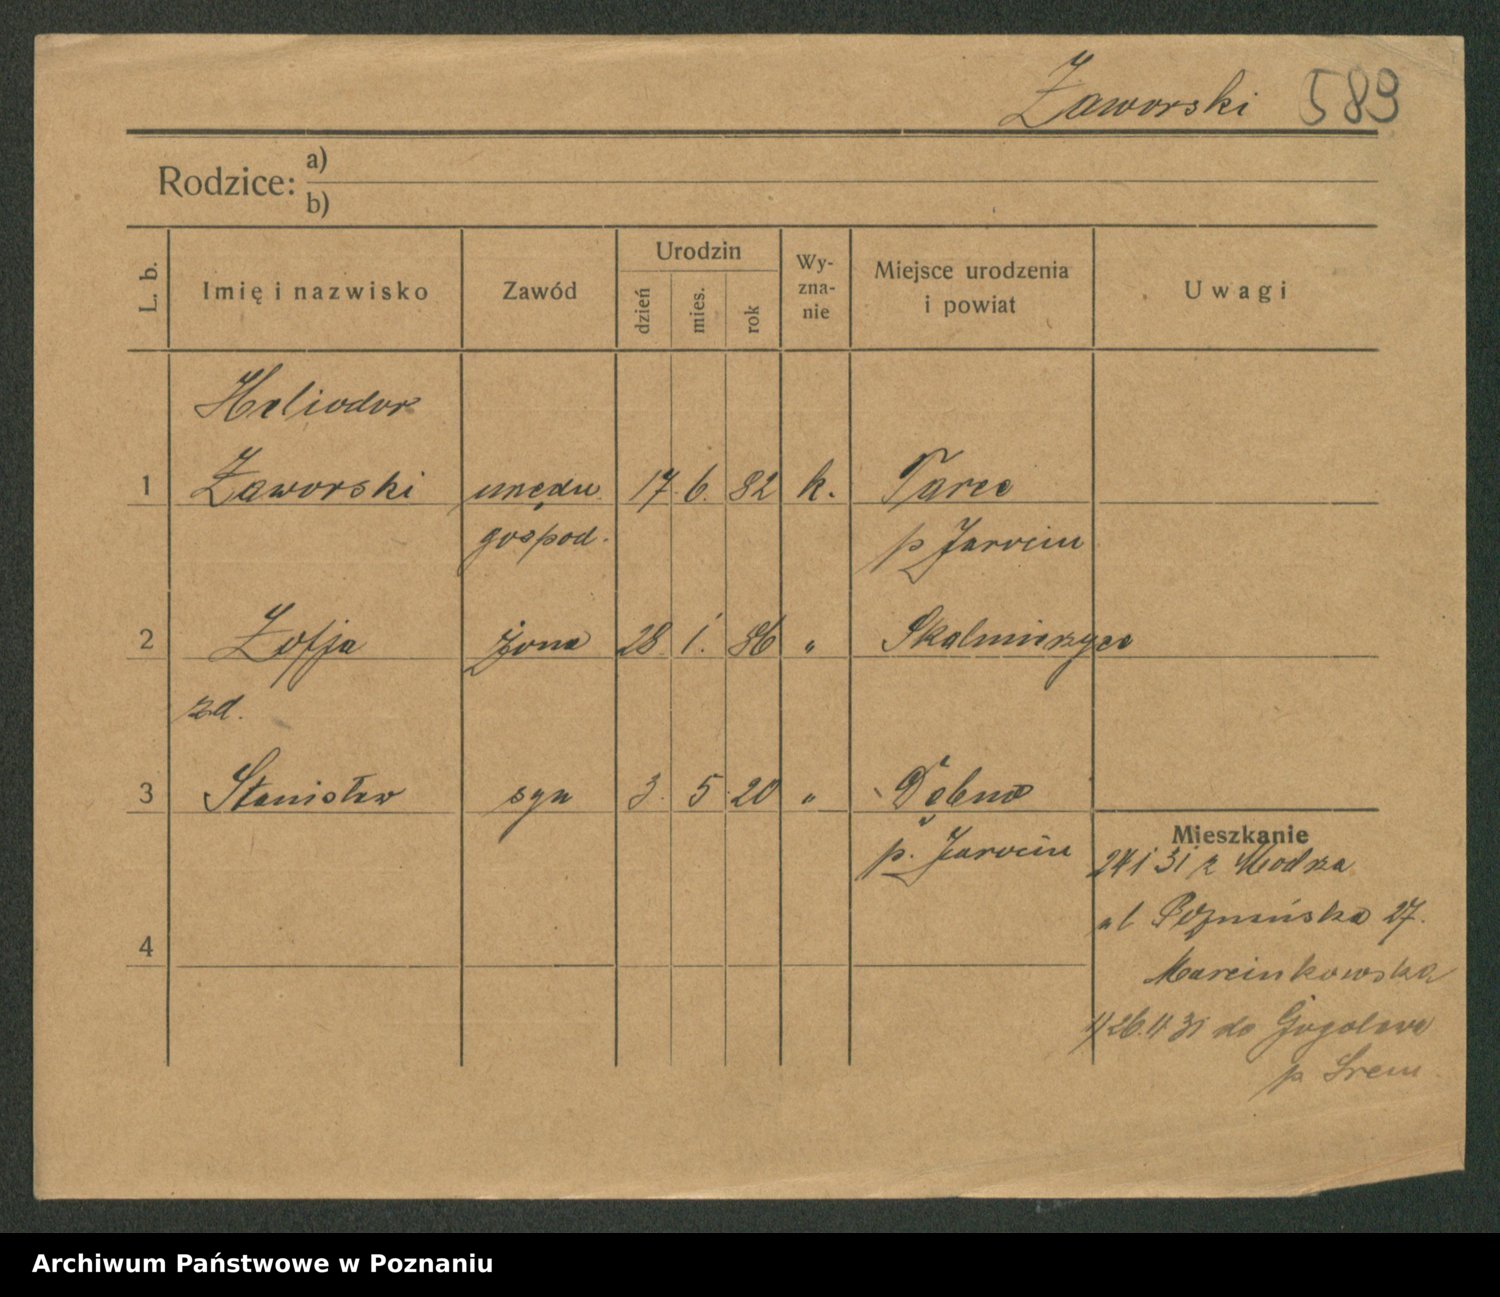 Zaworski 589
Rodzice:
a)
b)
L. b.
Imię i nazwisko
Zawód
Urodzin
dzień
mies.
rok
Wy-
zna-
nie
Miejsce urodzenia
i powiat
Uwagi
Heliodor
1 Zaworski urzędn. 17. 6. 82 k. Tarce
gospod. p Jarocin
2 Zofja żona 28. 1. 86 " Skalmierzyce
zd.
3 Stanisław syn 3. 5. 20 " Dębno
p. Jarocin
Mieszkanie
24 1 31 z Modrza
ul Poznańska 27.
4
Marcinkowska
26. 11 31 do Gogolewa
p. Śrem
Archiwum Państwowe w Poznaniu